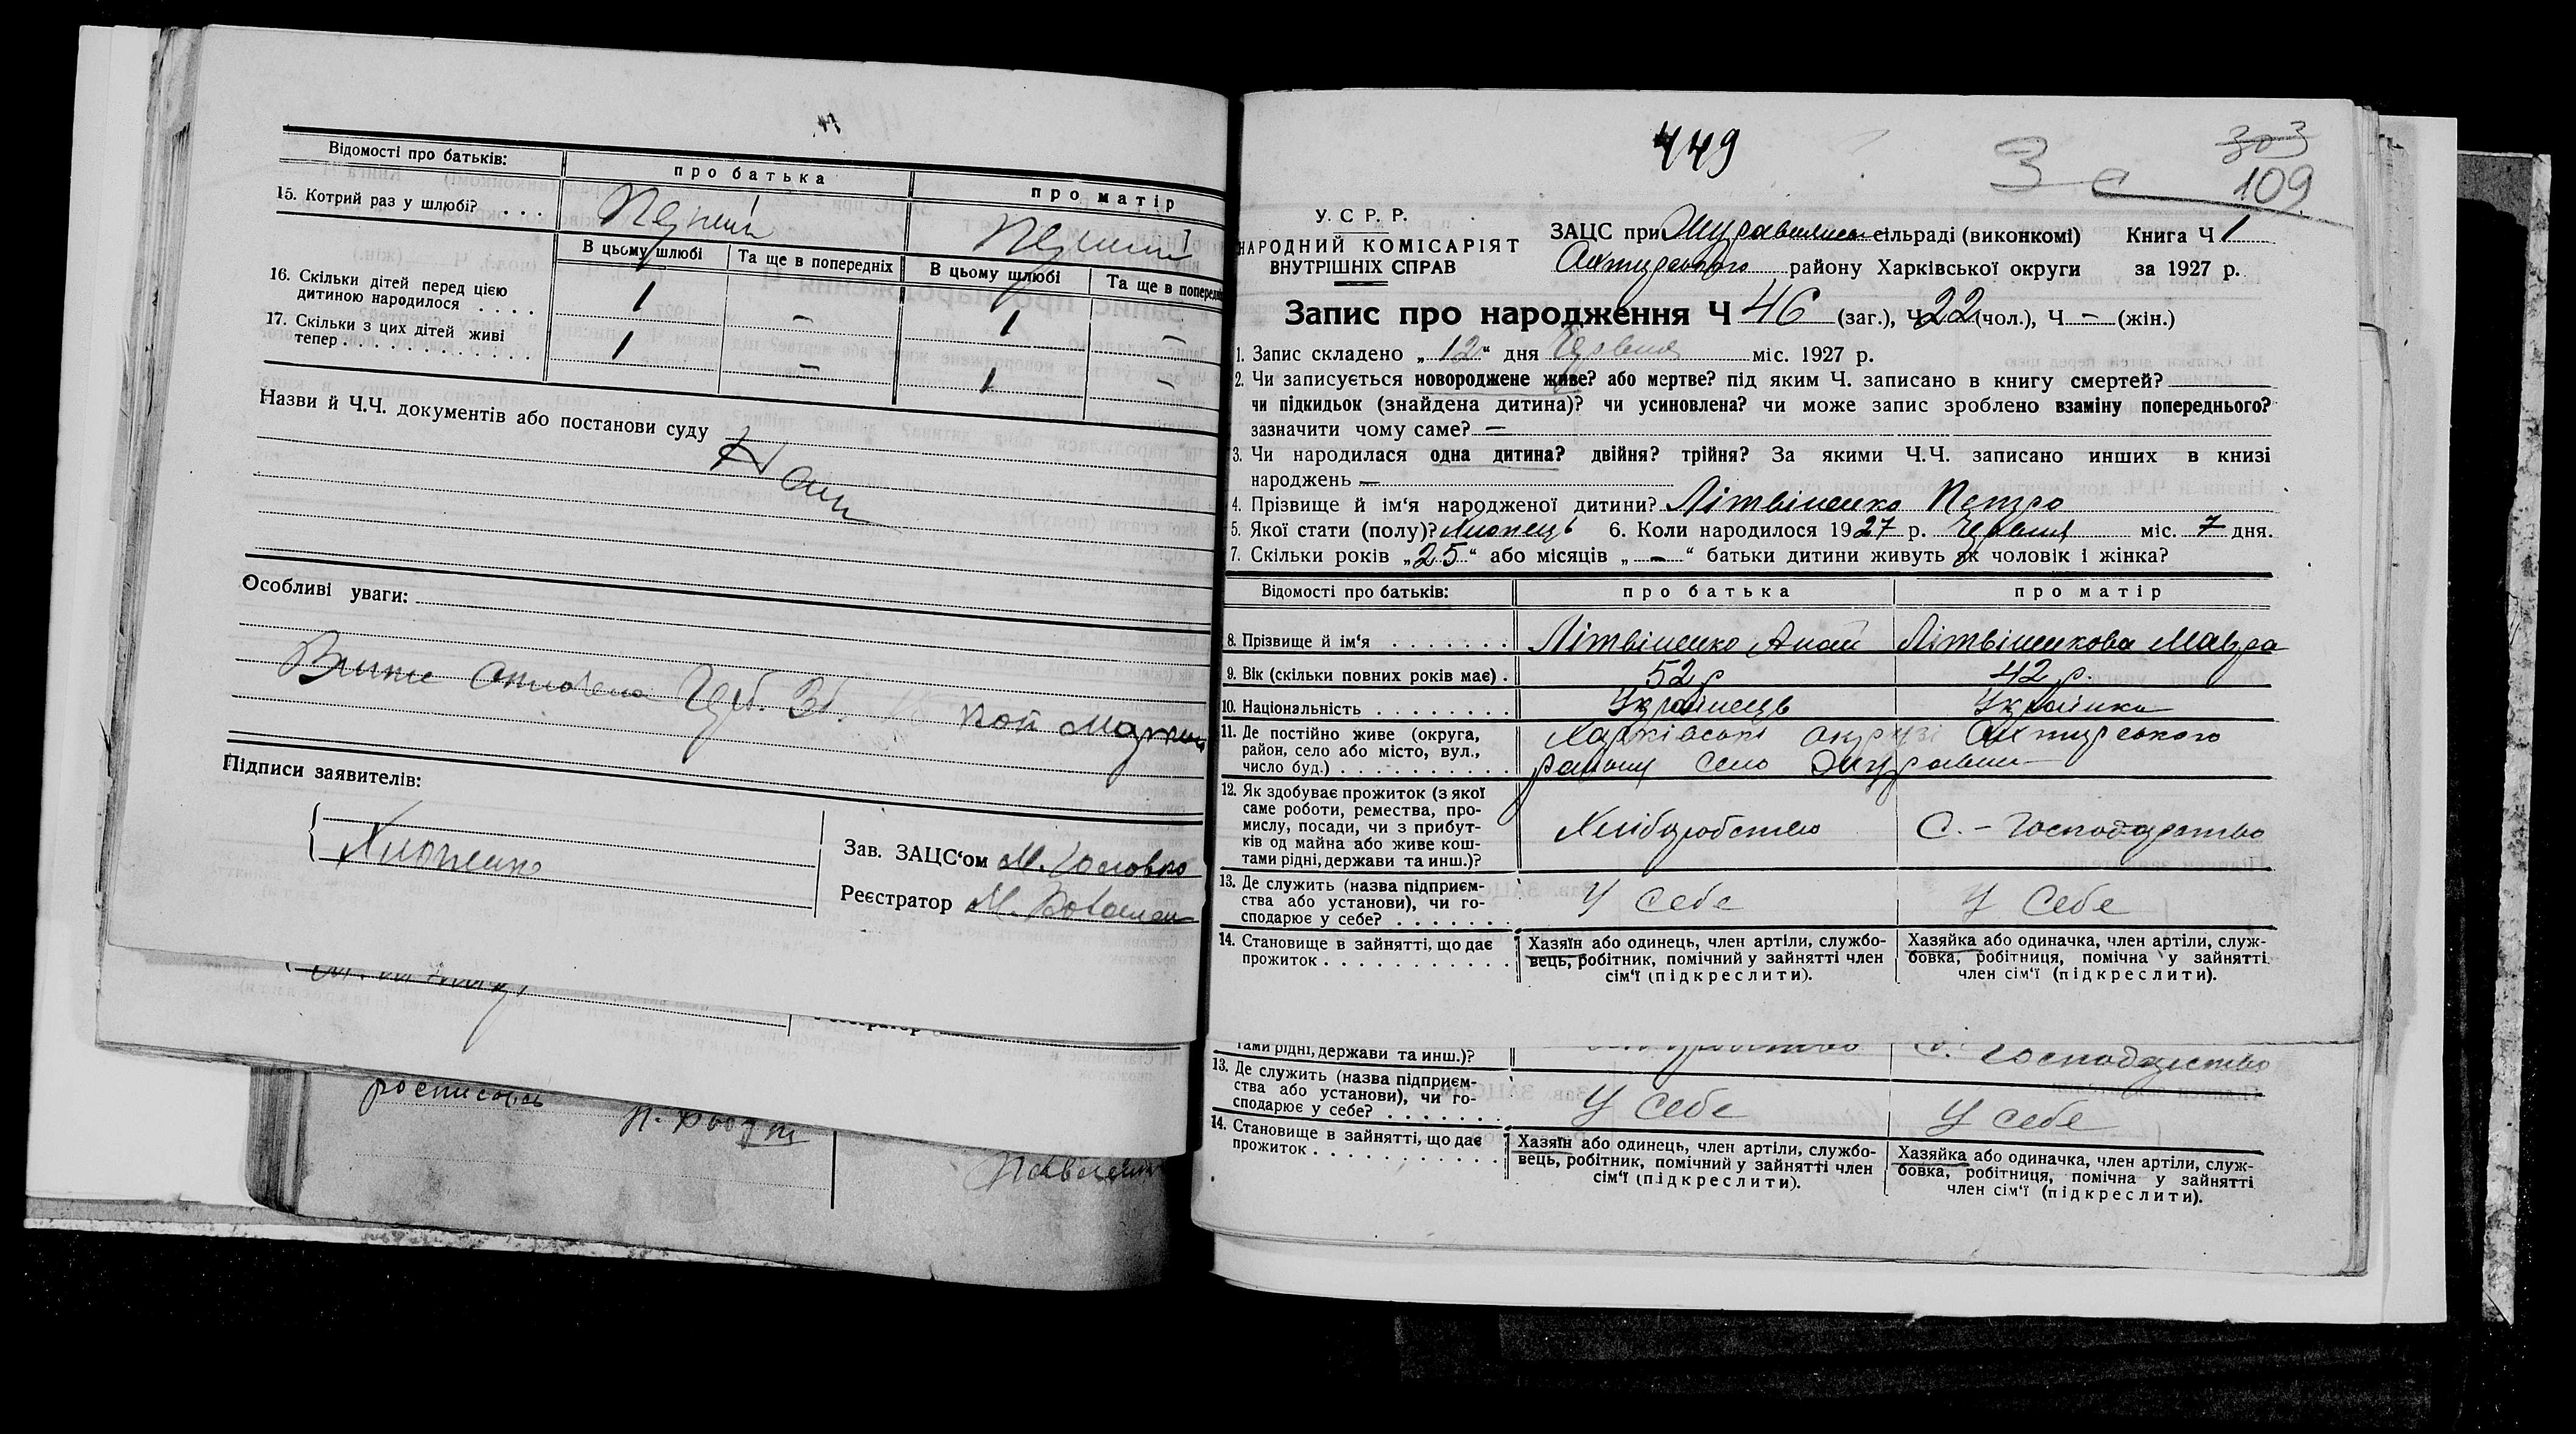 Відомості про батьків: про батька про матір
15. Котрий раз у шлюбі? . . . Перший Перший
В цьому шлюбі Та ще в попередніх В цьому шлюбі Та ще в попередні
16. Скільки дітей перед цією
дитиною народилося . . . . 1 – 1 –
17. Скільки з цих дітей живі
тепер . . . . . . . . . . . . 1 – 1 –
Назви й Ч.Ч. документів або постанови суду
Особливі уваги:
коп марки
Підписи заявителів:
Зав. ЗАЦС'ом М. Головко
Реєстратор М.
росписався
449
303
109
У. С Р. Р.
НАРОДНИЙ КОМІСАРІЯТ
ВНУТРІШНІХ СПРАВ
ЗАЦС при Журавлинсь сільраді (виконкомі) Книга Ч 1
Охтирського району Харківської округи за 1927 р.
Запис про народження Ч 46 (заг.), Ч 22 (чол.), Ч – (жін.)
1. Запис складено „ 12 “ дня Червня міс. 1927 р.
2. Чи записується новороджене живе? або мертве? під яким Ч. записано в книгу смертей?
чи підкидьок (знайдена дитина)? чи усиновлена? чи може запис зроблено взаміну попереднього?
зазначити чому саме? —
3. Чи народилася одна дитина? двійня? трійня? За якими Ч.Ч. записано инших в книзі
народжень —
4. Прізвище й ім'я народженої дитини? Літвіненко Петро
5. Якої стати (полу)? Хлопець 6. Коли народилося 1927 р. Червня міс. 7 дня.
7. Скільки років „25“ або місяців „ – “ батьки дитини живуть як чоловік і жінка?
Відомості про батьків: про батька про матір
8. Прізвище й ім'я . . . . . . . Літвіненко Літвіненкова Мавра
9. Вік (скільки повних років має) . 52 р 42 р.
10. Національність . . . . . . . . Українець Українка
11. Де постійно живе (округа,
район, село або місто, вул.,
число буд.) . . . . . . . . . . .
Харківської округі Охтирського
району село Журавли
12. Як здобуває прожиток (з якої
саме роботи, ремества, про-
мислу, посади, чи з прибут-
ків од майна або живе кош-
тами рідні, держави та инш.)?
Хліборобство С. – Господарство
13. Де служить (назва підприєм-
ства або установи), чи го-
сподарює у себе? . . . . . . .
У себе У себе
14. Становище в зайнятті, що дає
прожиток . . . . . . . . . . .
Хазяїн або одинець, член артіли, службо-
вець, робітник, помічний у зайнятті член
сім'ї (підкреслити).
Хазяйка або одиначка, член артіли, служ-
бовка, робітниця, помічна у зайнятті
член сім'ї (підкреслити).
тами рідні, держави та инш.)? С. Господарство
13. Де служить (назва підприєм-
ства або установи), чи го-
сподарює у себе? . . . . . . .
У себе У себе
14. Становище в зайнятті, що дає
прожиток . . . . . . . . . . .
Хазяїн або одинець, член артіли, службо-
вець, робітник, помічний у зайнятті член
сім'ї (підкреслити).
Хазяйка або одиначка, член артіли, служ-
бовка, робітниця, помічна у зайнятті
член сім'ї (підкреслити).